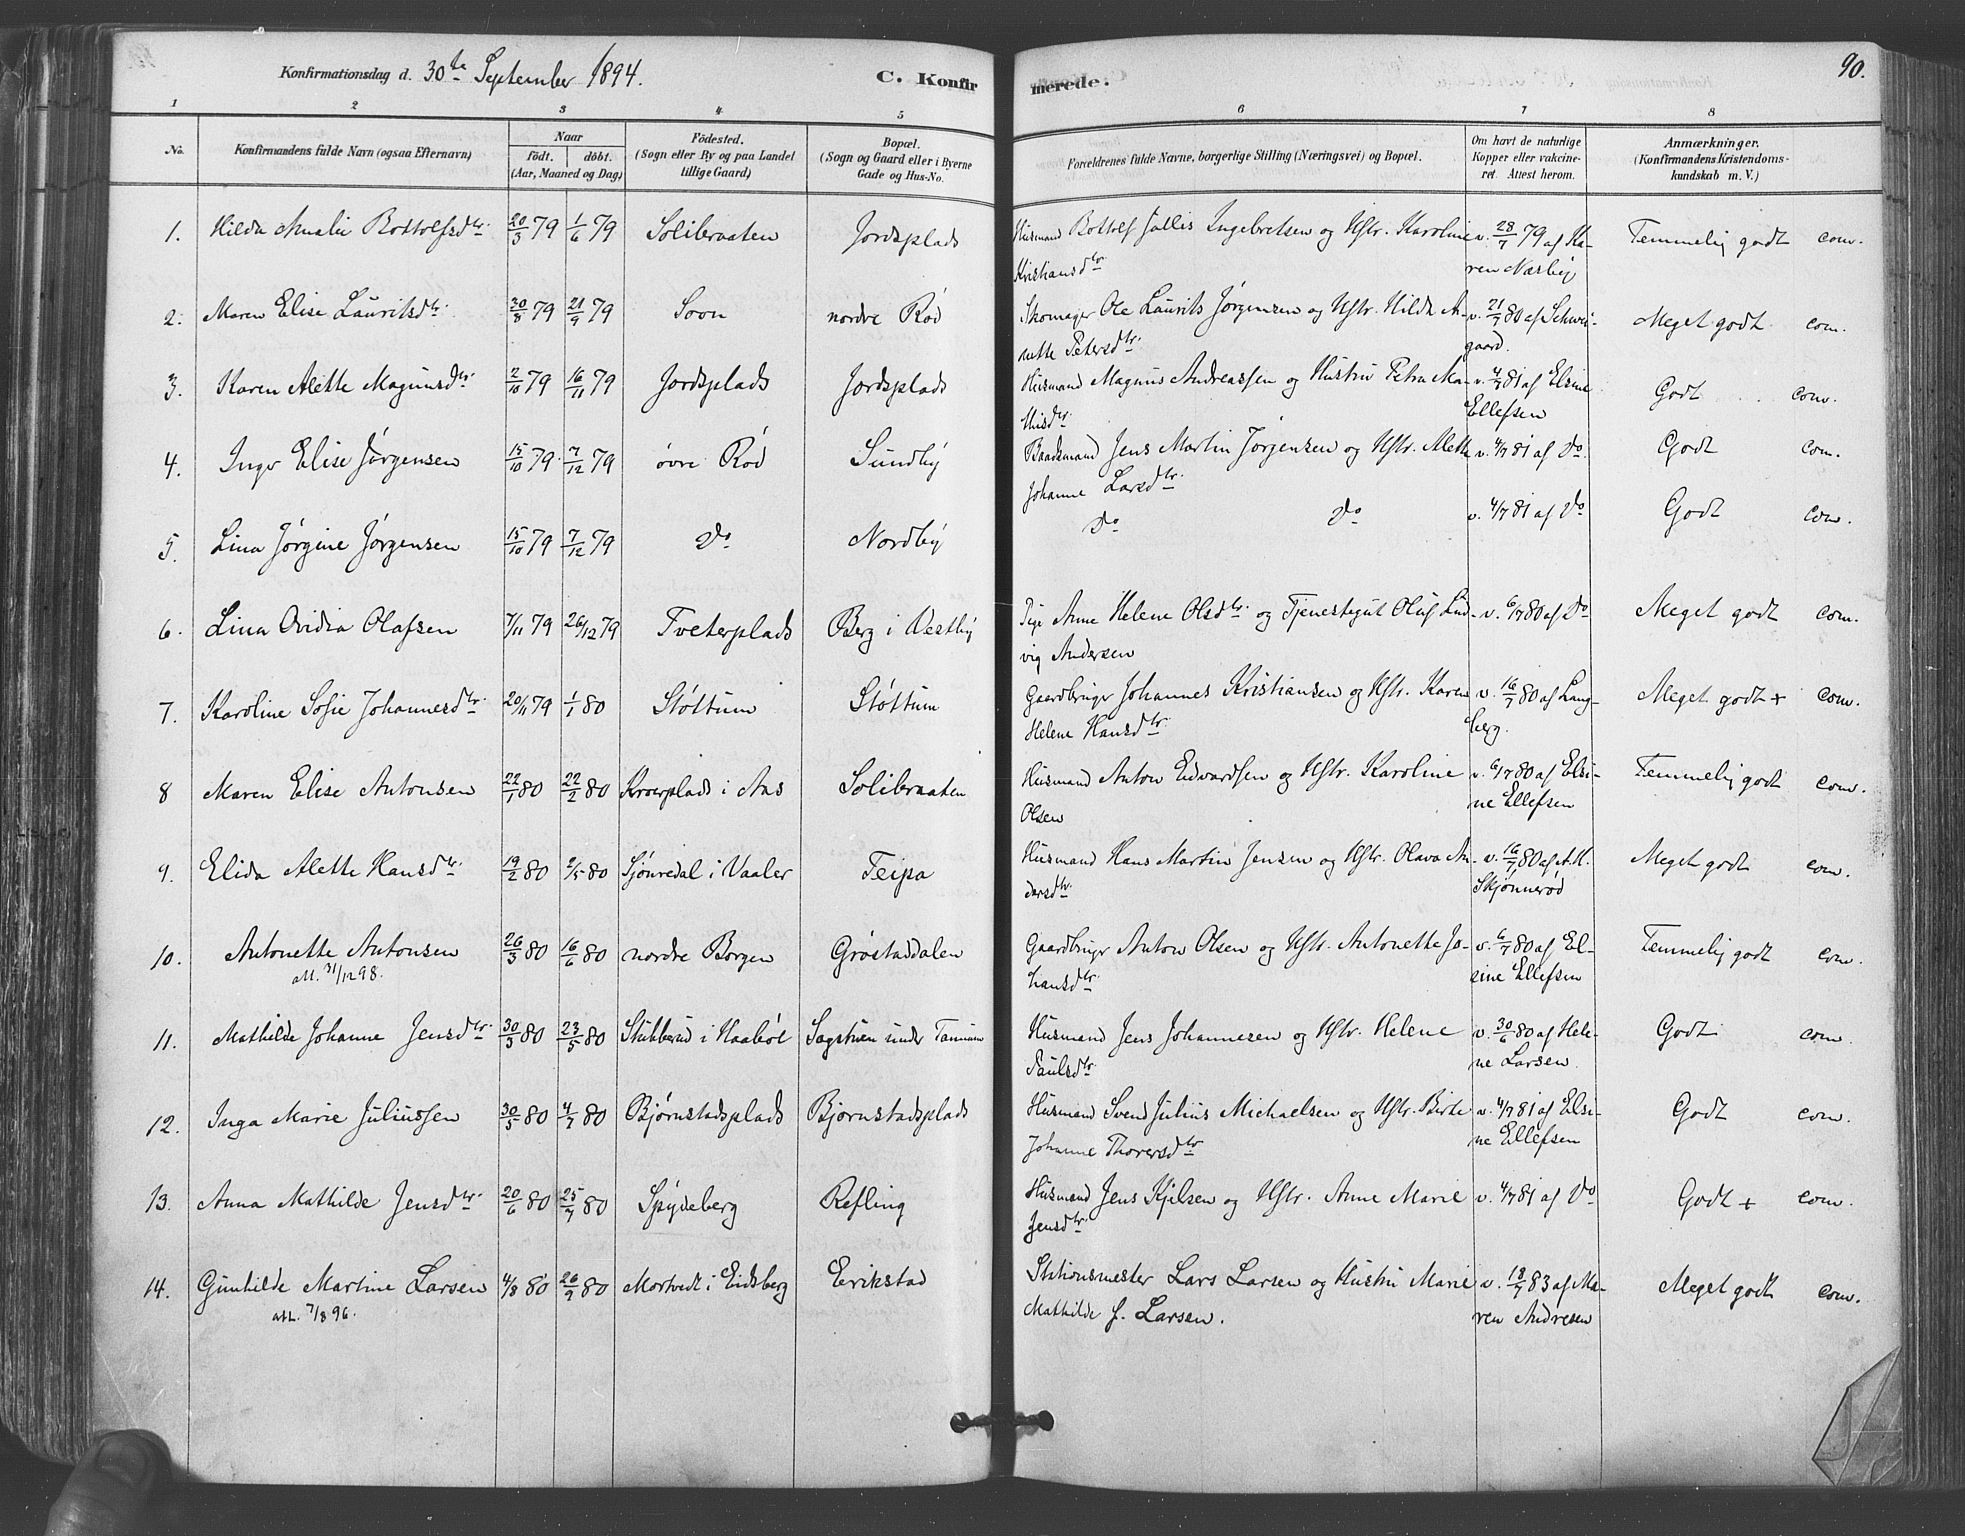 Konfirmationsdag d. 30te September 1894. C. Konfirmerede. 90.
1 2 3 4 5 6 7 8
No. Konfirmandens fulde Navn (ogsaa Efternavn) Naar født. døbt. (Aar, Maaned og Dag) Födested. (Sogn eller By og paa Landet tillige Gaard) Bopæl. (Sogn og Gaard eller i Byerne Gade og Hus-No. Forældrenes fulde Navne, borgerlige Stilling (Næringsvei) og Bopæl. Om havt de naturlige Kopper eller vakcineret. Attest herom. Anmærkninger. (Konfirmandens Kristendomskundskab m. V.)
1. Hilda Amalie Bottolfsdtr. 20/3 79 1/6 79 Solibraaten Jordsplads Husmand Bottolf Julius Ingebretsen og Hstr. Karoline v. 28/7 79 af Ka- Temmelig godt com.
Kristiansdtr. ren Næsby
2. Maren Elise Lauritsdtr. 30/8 79 21/9 79 Soon nordre Rød Skomager Ole Laurits Jørgensen og Hstr. Hilda A- v. 21/7 80 af Schwei- Meget godt com.
nette Petersdtr. gaard.
3. Karen Alette Magnusdtr. 2/10 79 16/11 79 Jordsplads Jordsplads Husmand Magnus Andreassen og Hustru Petra Ma- v. 4/7 81 af Elsine Godt com.
thisdtr. Ellefsen
4. Inga Elise Jørgensen 15/10 79 7/12 79 øvre Rød Sundby Baadsmand Jens Martin Jørgensen og Hstr. Alette v. 4/7 81 af Do. Godt com.
Johanne Larsdtr.
5. Lina Jørgine Jørgensen 15/10 79 7/12 79 Do Nordby Do Do v. 4/7 81 af Do Godt com.
6. Lina Ovidia Olafsen 7/11 79 26/12 79 Tveterplads Berg i Vestby Pige Anne Helene Olsdtr. og Tjenestegut Oluf Lud- v. 6/7 80 af Do Meget godt com.
vig Andersen
7. Karoline Sofie Johannesdtr. 20/11 79 1/1 80 Støttum Støttum Gaardbruger Johannes Kristiansen og Hstr. Karen v. 16/7 80 af Lang- Meget godt + com.
Helene Hansdtr. berg.
8 Maren Elise Antonsen 22/1 80 22/2 80 Kroerplads i Aas Solibraaten Husmand Anton Edvardsen og Hstr. Karoline v. 6/7 80 af Elsi- Temmelig godt com.
Olsen ne Ellefsen
9. Elida Alette Hansdtr. 19/2 80 2/5 80 Sjönredal i Vaaler Teipa Husmand Hans Martin Jensen og Hstr. Olava An- v. 16/7 80 af A. H. Meget godt com.
dersdtr. Skjønnerød
10. Antonette Antonsen 26/3 80 16/6 80 nordre Borgen Grøstaddalen Gaardbruger Anton Olsen og Hstr. Antonette Jo- v. 6/7 80 af El- Temmelig godt com.
att. 31/12 98. hansdtr. sine Ellefsen
11. Mathilde Johanne Jensdtr. 30/3 80 23/5 80 Stubberud i Haabøl Sagstuen under Tannum Husmand Jens Johannesen og Hstr. Helene v. 30/6 80 af Hele- Godt com.
Paulsdtr. ne Larsen
12. Inga Marie Juliussen 30/5 80 4/7 80 Bjørnstadsplads Bjørnstadsplads Husmand Svend Julius Michaelsen og Hstr. Birte v. 4/7 81 af Elsi- Godt com.
Johanne Thoversdtr. ne Ellefsen
13. Anna Mathilde Jensdtr. 20/6 80 25/7 80 Spydeberg Refling Husmand Jens Kjelsen og Hstr. Anne Marie v. 4/7 81 af Do Godt + com.
Jensdtr.
14. Gunhilde Martine Larsen 4/8 80 26/9 80 Mortvedt i Eidsberg Erikstad Stationsmester Lars Larsen og Hustru Marie v. 18/7 83 af Ma- Meget godt com.
att. 7/8 96. Mathilde f. Larsen. ren Andresen